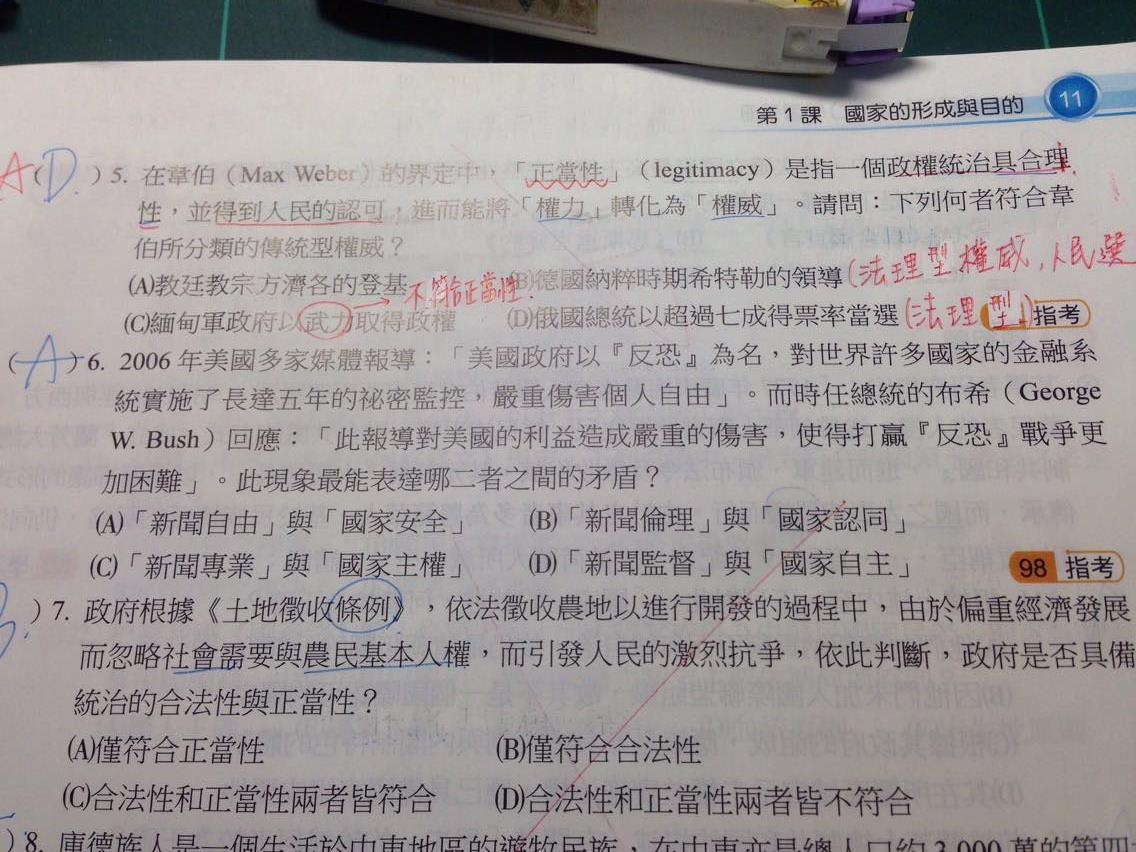 第1課 國家的形成與目的 11
A ( D. ) 5. 在韋伯（Max Weber）的界定中，「正當性」（legitimacy）是指一個政權統治具合理
性，並得到人民的認可，進而能將「權力」轉化為「權威」。請問：下列何者符合韋
伯所分類的傳統型權威？
(A)教廷教宗方濟各的登基 (B)德國納粹時期希特勒的領導 (法理型權威，人民選
不符合正當性.
(C)緬甸軍政府以武力取得政權 (D)俄國總統以超過七成得票率當選 (法理型) 指考
( A ) 6. 2006 年美國多家媒體報導：「美國政府以『反恐』為名，對世界許多國家的金融系
統實施了長達五年的祕密監控，嚴重傷害個人自由」。而時任總統的布希（George
W. Bush）回應：「此報導對美國的利益造成嚴重的傷害，使得打贏『反恐』戰爭更
加困難」。此現象最能表達哪二者之間的矛盾？
(A)「新聞自由」與「國家安全」 (B)「新聞倫理」與「國家認同」
(C)「新聞專業」與「國家主權」 (D)「新聞監督」與「國家自主」 98 指考
B. ) 7. 政府根據《土地徵收條例》，依法徵收農地以進行開發的過程中，由於偏重經濟發展
而忽略社會需要與農民基本人權，而引發人民的激烈抗爭，依此判斷，政府是否具備
統治的合法性與正當性？
(A)僅符合正當性 (B)僅符合合法性
(C)合法性和正當性兩者皆符合 (D)合法性和正當性兩者皆不符合
) 8. 庫德族人是一個生活於中東地區的遊牧民族，在中東亦是總人口約 3,000 萬的第四